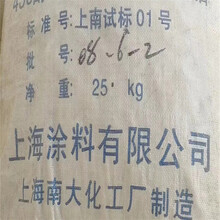 标准号:上南试标01号
批号: 08-6-2
净重: 25·kg
上海涂料有限公司
上海南大化工厂制造